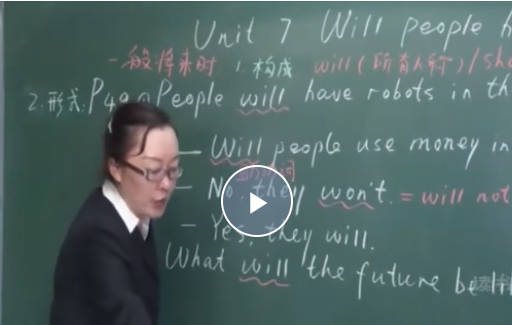 Unit 7 Will people h
一般将来时 1.构成 will(所有人称)/sha
2.形式: P49 People will have robots in th
— Will people use money in
问
— No, they won't. = will not
— Yes, they will.
What will the future be li